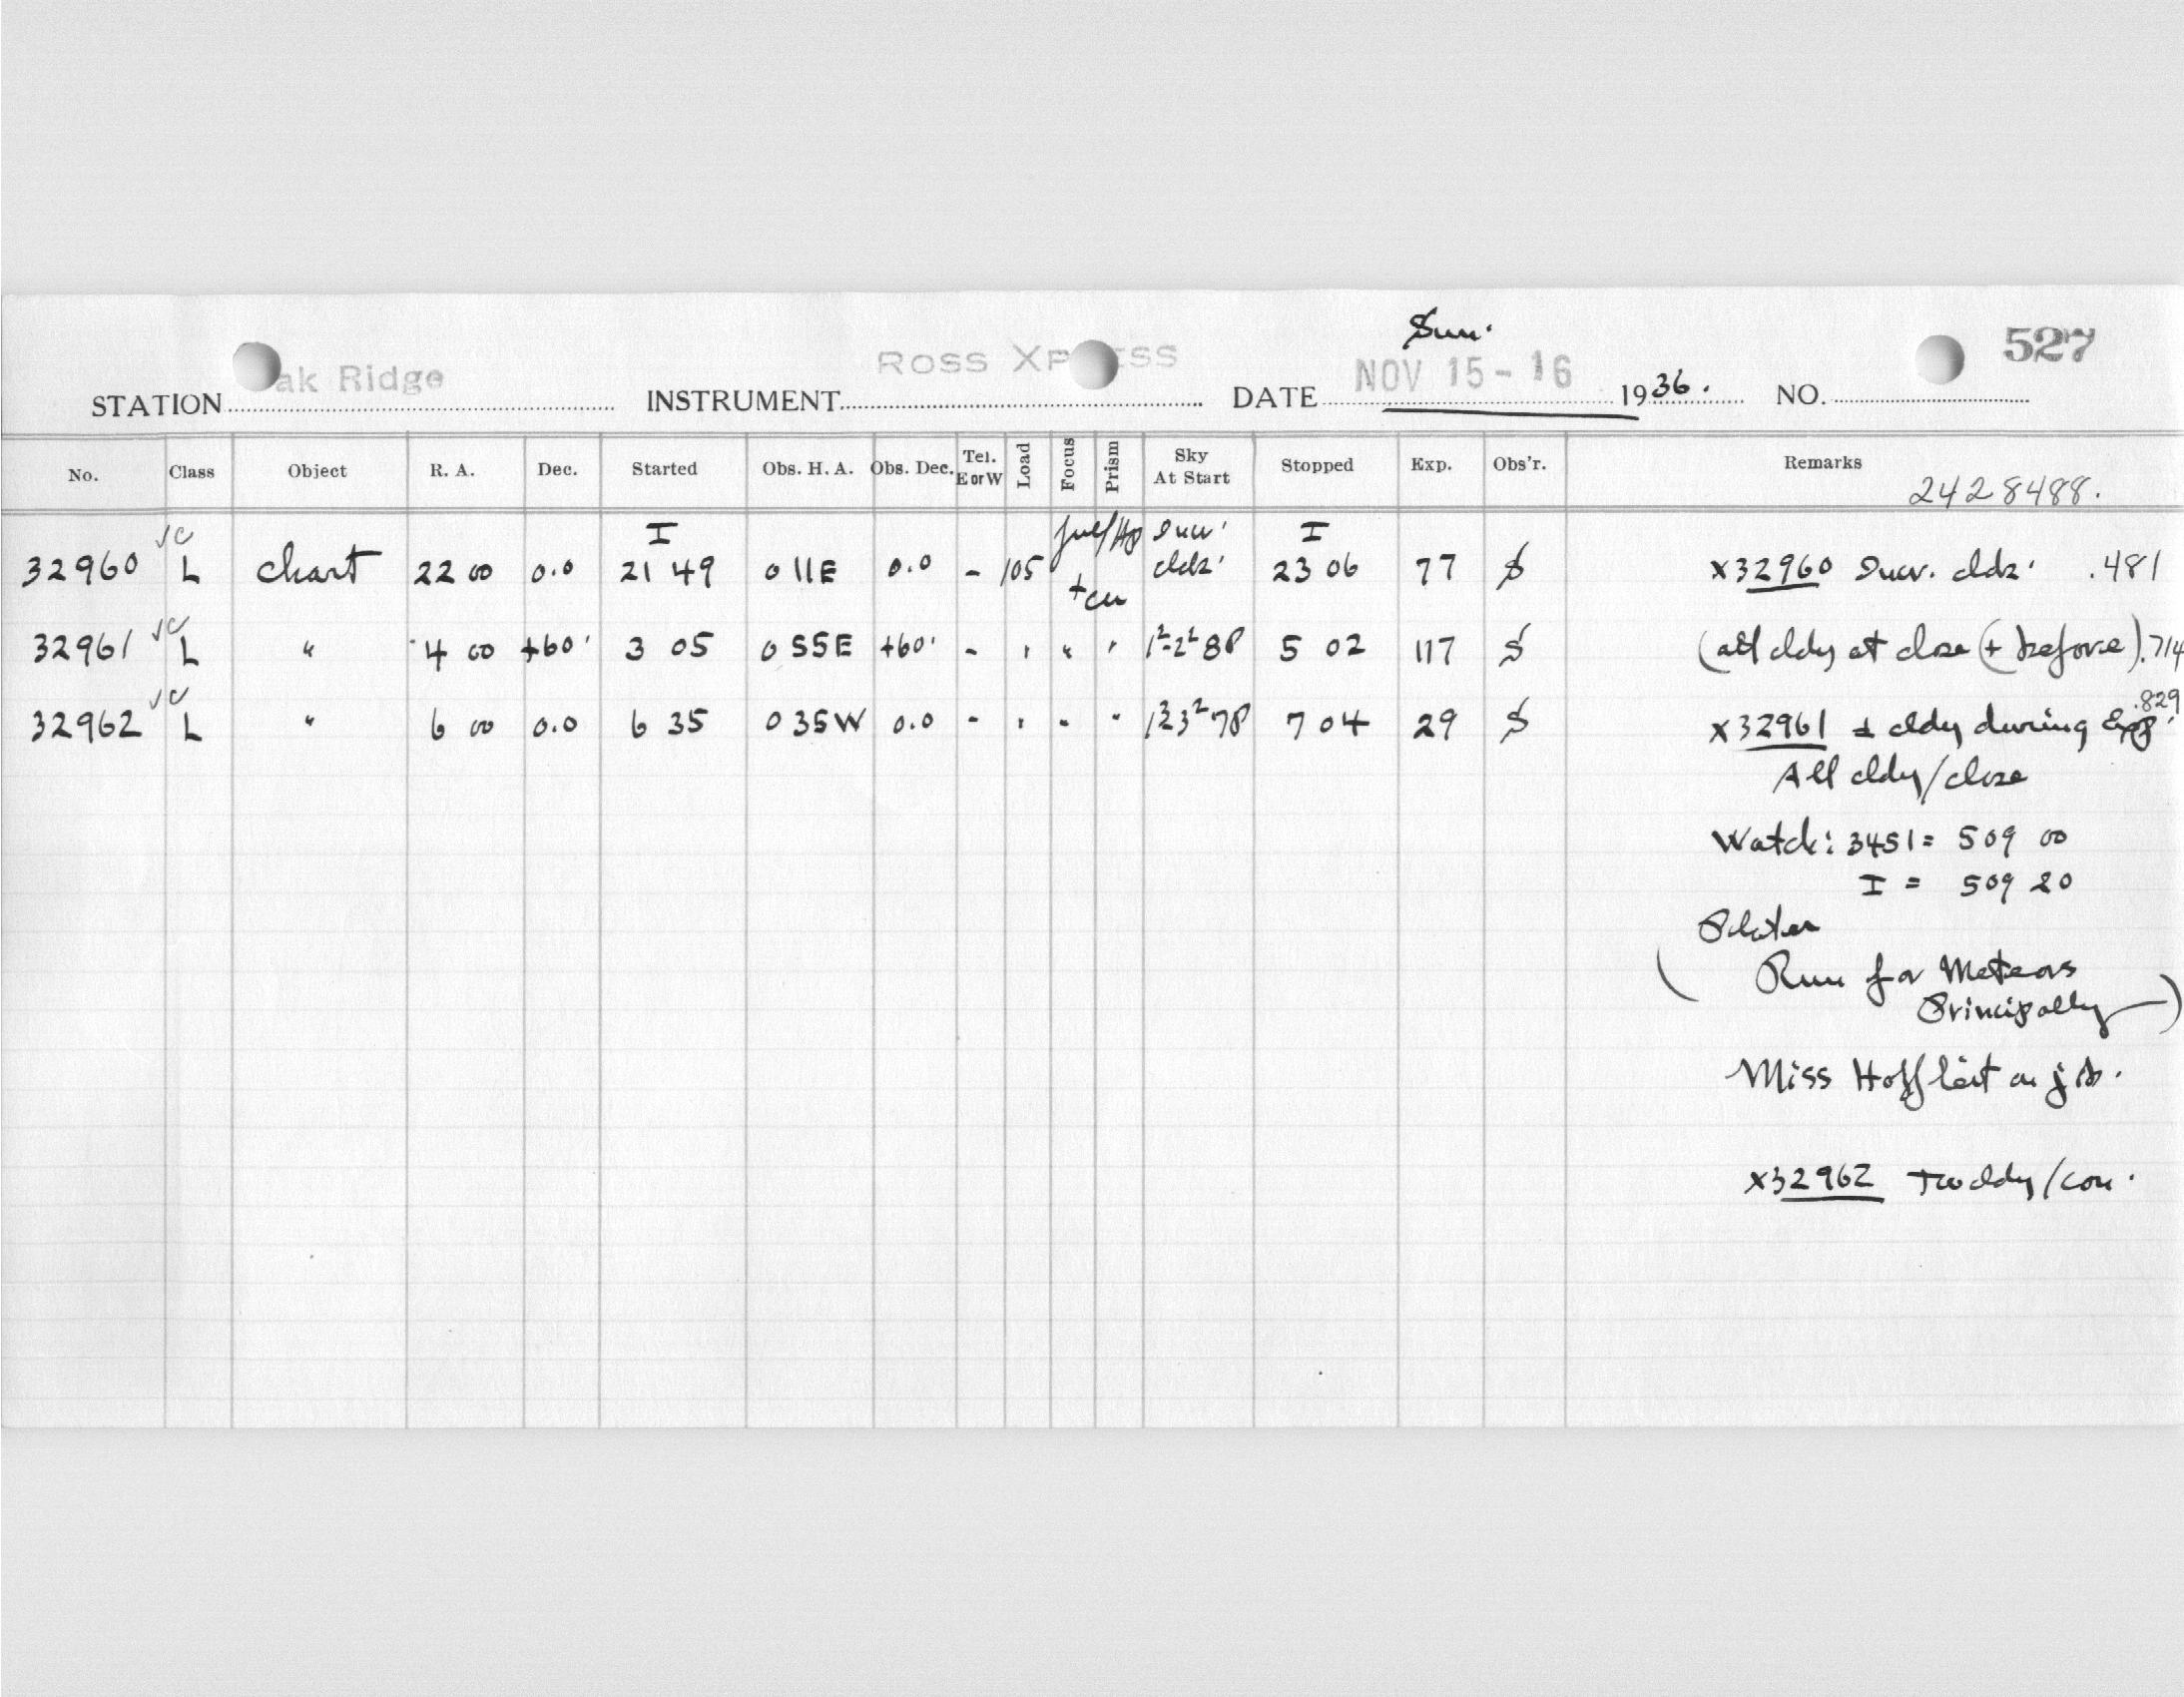 Sun.
STATION ak Ridge INSTRUMENT ROSS XP ESS DATE NOV 15-16 1936. NO. 527
No. Class Object R. A. Dec. Started Obs. H. A. Obs. Dec. Tel. E or W Load Focus Prism Sky At Start Stopped Exp. Obs'r. Remarks
2428488.
√c I I
32960 L chart 22 00 0.0 21 49 0 11E 0.0 - 105 cldz. 23 06 77 $ x32960 cldz. .481
√c
32961 L " 4 00 +60° 3 05 0 55E +60° - " " " 5 02 117 $ (all cldy at close (+ before) .714
√c .829
32962 L " 6 00 0.0 6 35 0 35W 0.0 - " " " 7 04 29 $ x32961 ± cldy during Exp.
All cldy/close
Watch: 3451 = 509 00
I = 509 20
Plates
(Run for Meteors
Principally)
Miss Hoffleit on job.
x32962 cldy/